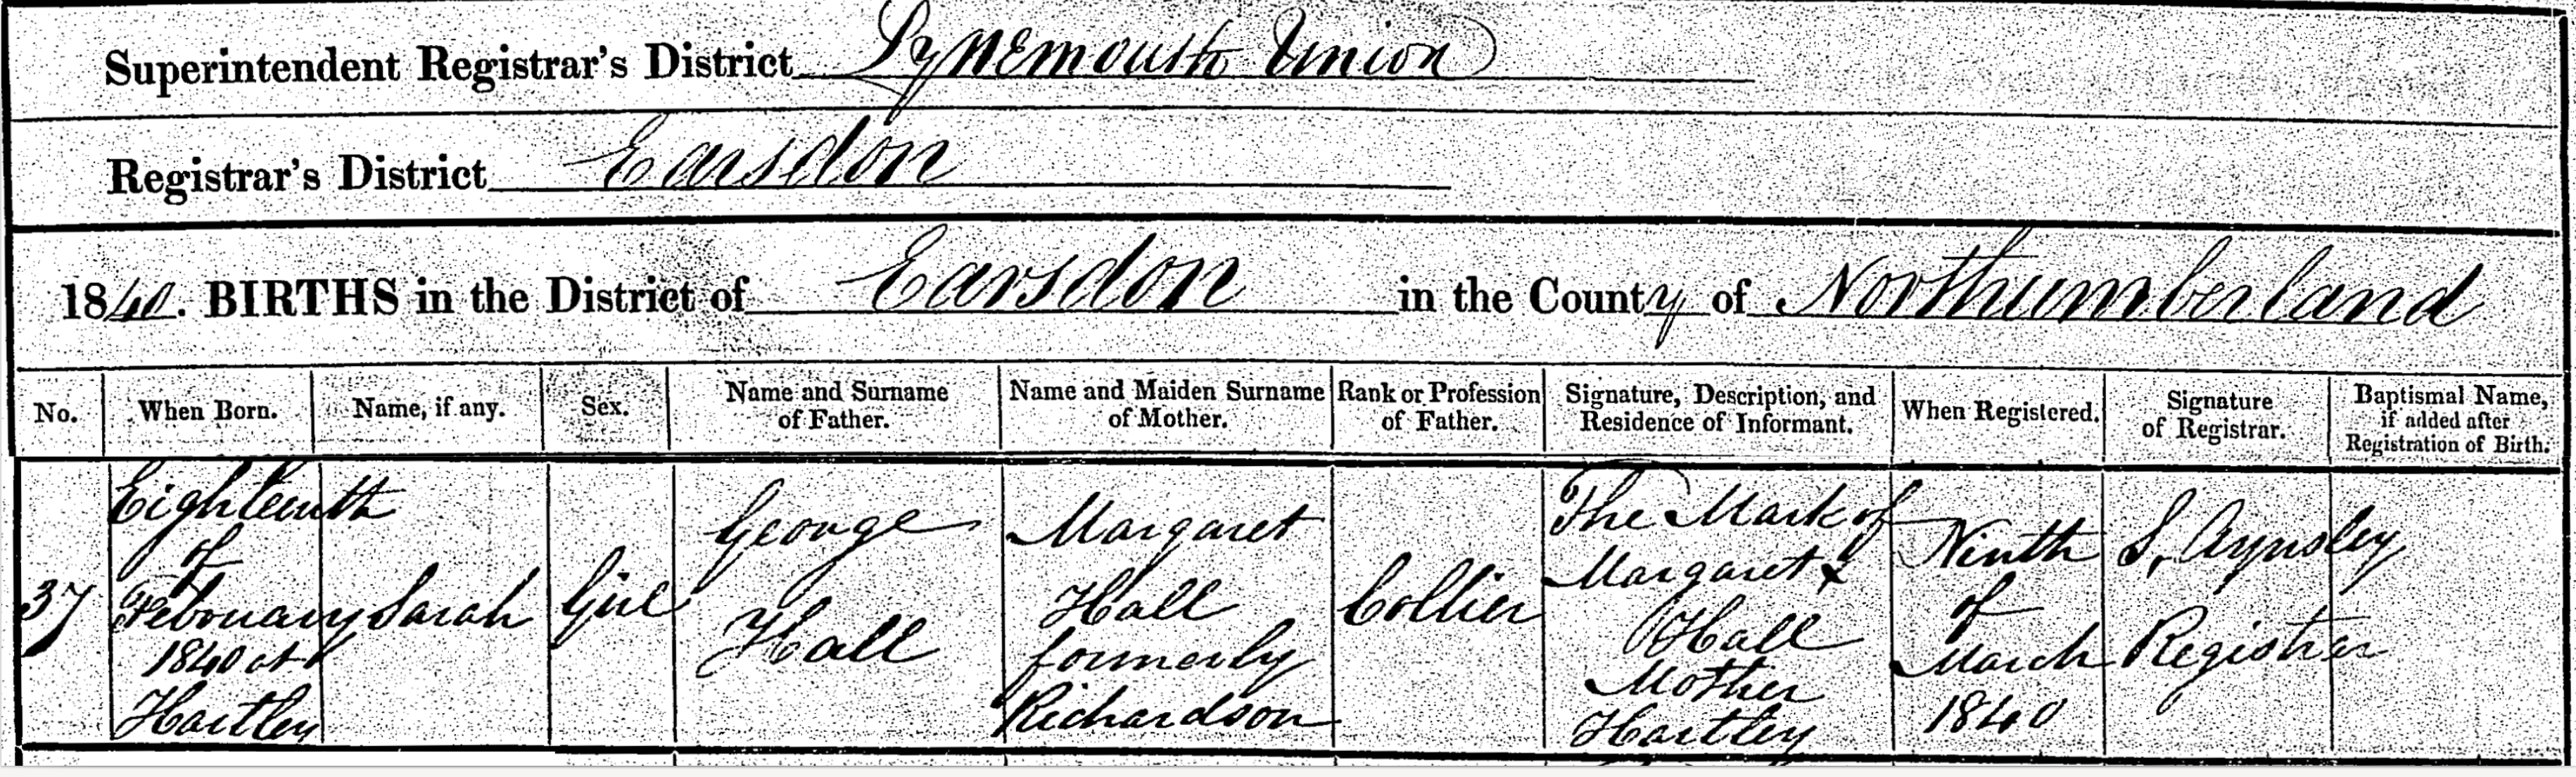 Superintendent Registrar's District Tynemouth Union
Registrar's District Earsdon
1840. BIRTHS in the District of Earsdon in the County of Northumberland
No.
When Born.
Name, if any.
Sex.
Name and Surname
of Father.
Name and Maiden Surname
of Mother.
Rank or Profession
of Father.
Signature, Description, and
Residence of Informant.
When Registered.
Signature
of Registrar.
Baptismal Name,
if added after
Registration of Birth.
37
Eighteenth
of
February
1840 at
Hartley
Sarah
Girl
George
Hall
Margaret
Hall
formerly
Richardson
Collier
The Mark of
Margaret X
Hall
Mother
Hartley
Ninth
of
March
1840
S, Aynsley
Registrar